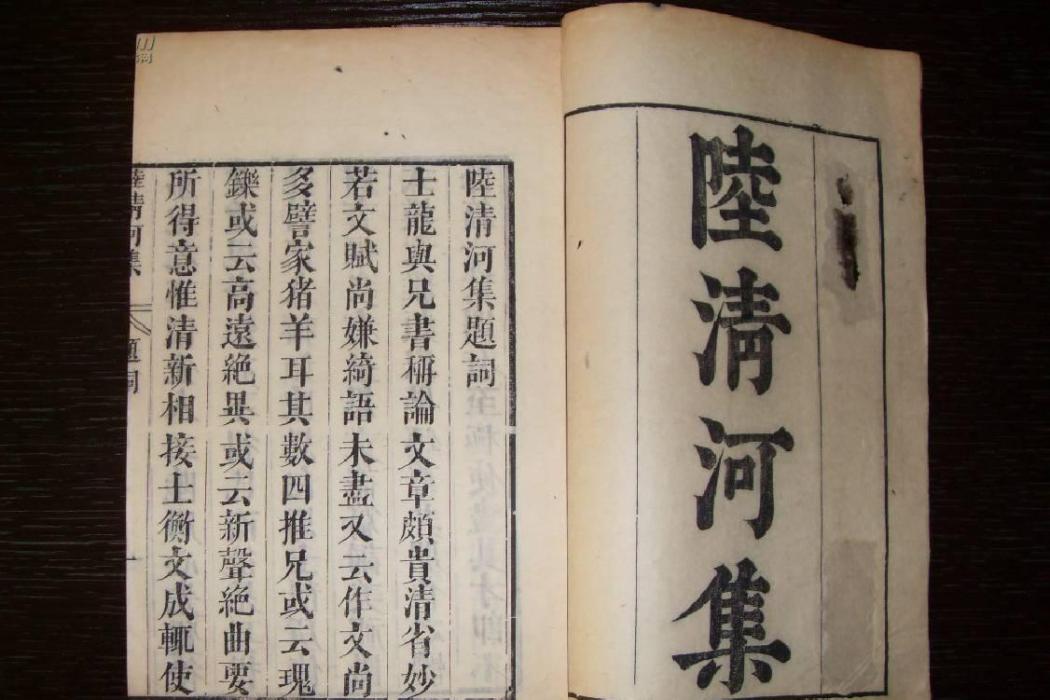 陸清河集
陸清河集題詞
士龍與兄書稱論文章頗貴清省妙
若文賦尚嫌綺語未盡又云作文尚
多譬家猪羊耳其數四推兄或云瑰
鑠或云高遠絶異或云新聲絶曲要
所得意惟清新相接士衡文成輒使
陸清河集
題詞
一